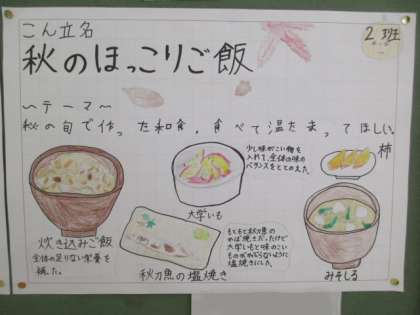 こん立名
2班
秋のほっこりご飯
〜テーマ〜
秋の旬で作った和食。食べて温たまってほしい。
少し味がこい物
を入れて、全体の味の
バランスをととのえた。
柿
大学いも
炊き込みご飯
全体の足りない栄養を
補った。
秋刀魚の塩焼き
もともと秋刀魚の
かば焼きだったけど
大学いもと味のこい
ものがかぶらないように
塩焼きにした。
みそしる